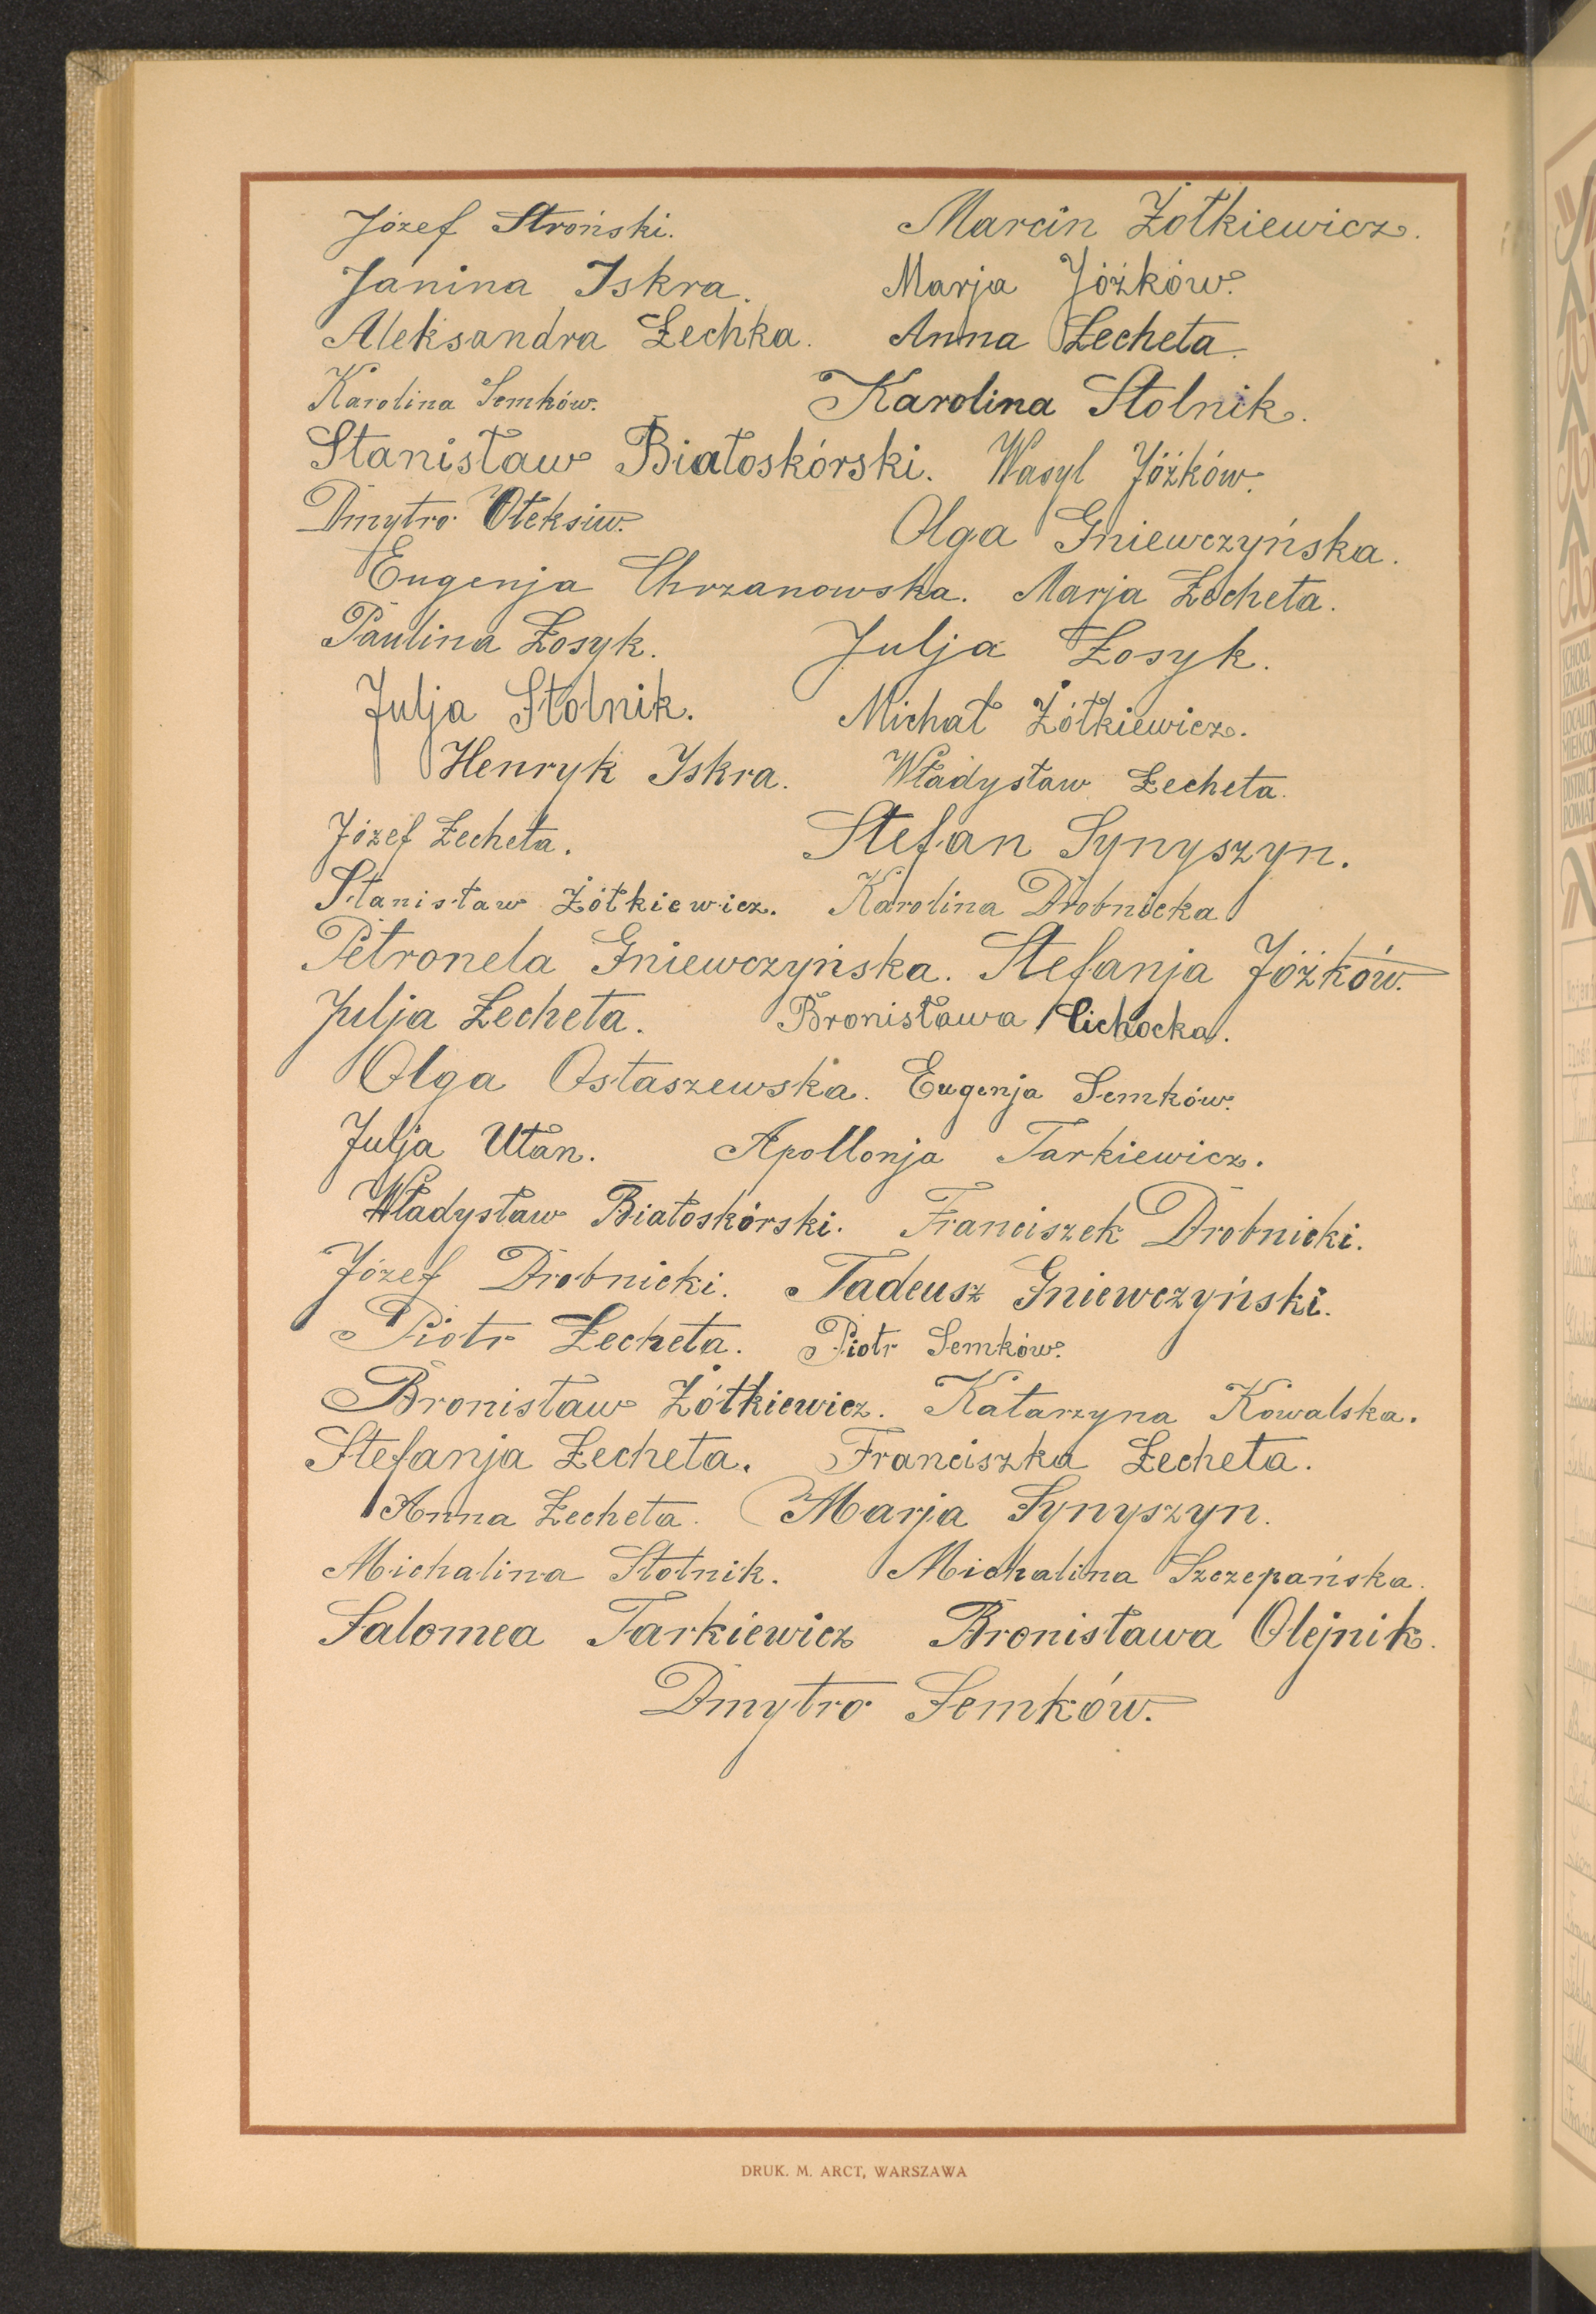 Józef Stroński. Marcin Żołkiewicz.
Janina Iskra. Marja Jóżków.
Aleksandra Łechka. Anna Łecheta.
Karolina Semków. Karolina Stolnik.
Stanisław Białoskórski. Wasyl Jóżków.
Dmytro Ołeksiw. Olga Gniewczyńska.
Eugenja Chrzanowska. Marja Łecheta.
Paulina Łosyk. Julja Łosyk.
Julja Stolnik. Michał Żółkiewicz.
Henryk Iskra. Władysław Łecheta.
Józef Łecheta. Stefan Synyszyn.
Stanisław Żółkiewicz. Karolina Drobnicka
Petronela Gniewczyńska. Stefanja Jóżków.
Julja Łecheta. Bronisława Cichocka.
Olga Ostaszewska. Eugenja Semków.
Julja Ułan. Apollonja Tarkiewicz.
Władysław Białoskórski. Franciszek Drobnicki.
Józef Drobnicki. Tadeusz Gniewczyński.
Piotr Łecheta. Piotr Semków.
Bronisław Żółkiewicz. Katarzyna Kowalska.
Stefanja Łecheta. Franciszka Łecheta.
Anna Łecheta. Marja Synyszyn.
Michalina Stolnik. Michalina Szczepańska.
Salomea Tarkiewicz Bronisława Olejnik.
Dmytro Semków.
DRUK. M. ARCT, WARSZAWA